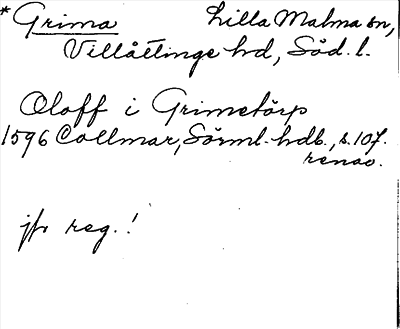 * Grima Lilla Malma sn,
Villåttinge hd, Söd. l.
Oloff i Grimetörp
1596 Collmar, Sörml. hdb., s. 107.
renov.
jfr reg.!